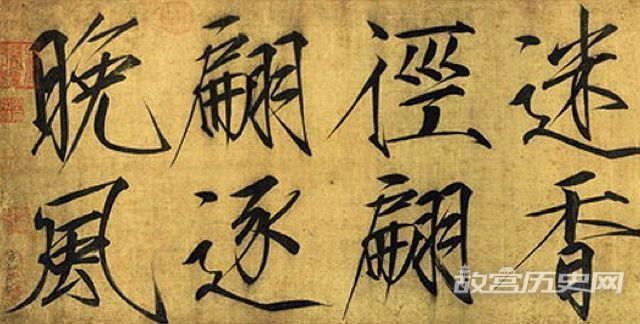 迷香
徑翩
翩逐
晚風
故宫历史网